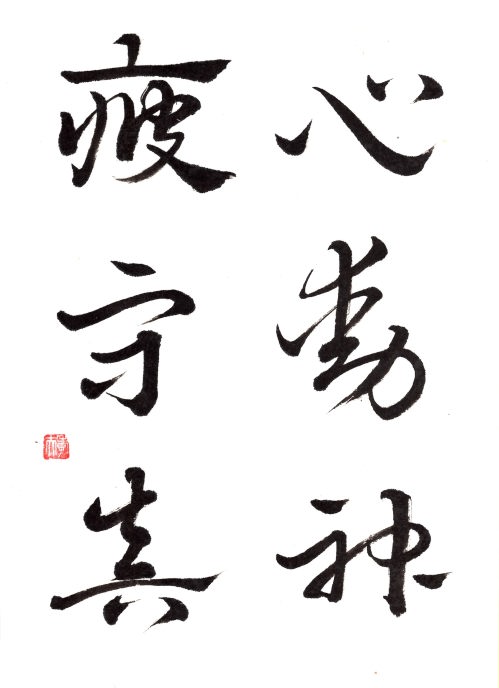 心動神
疲守真